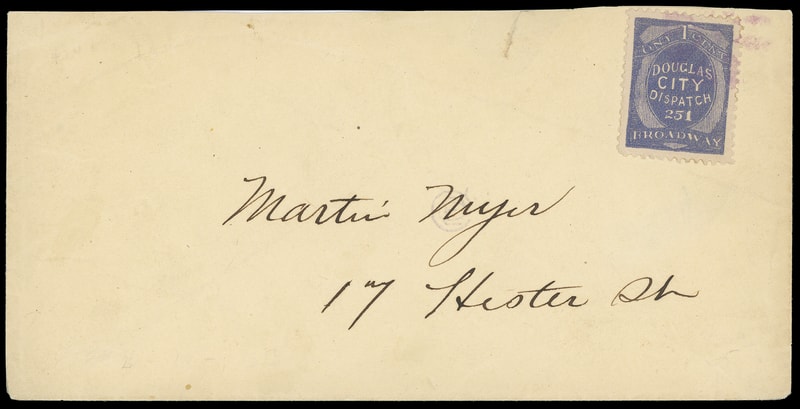 ONE 1 CENT
DOUGLAS
CITY
DISPATCH
251
BROADWAY
Martin Myer
17 Hester St